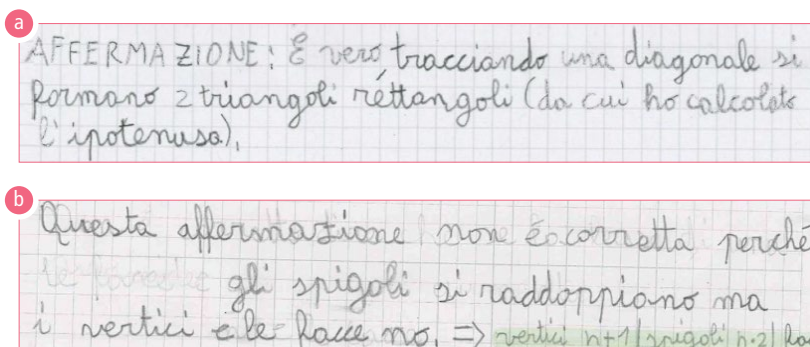 a
AFFERMAZIONE: È vero tracciando una diagonale si
formano 2 triangoli rettangoli (da cui ho calcolato
l'ipotenusa).
b
Questa affermazione non è corretta perché
gli spigoli si raddoppiano ma
i vertici e le facce no. => vertici n+1 | spigoli n·2 |